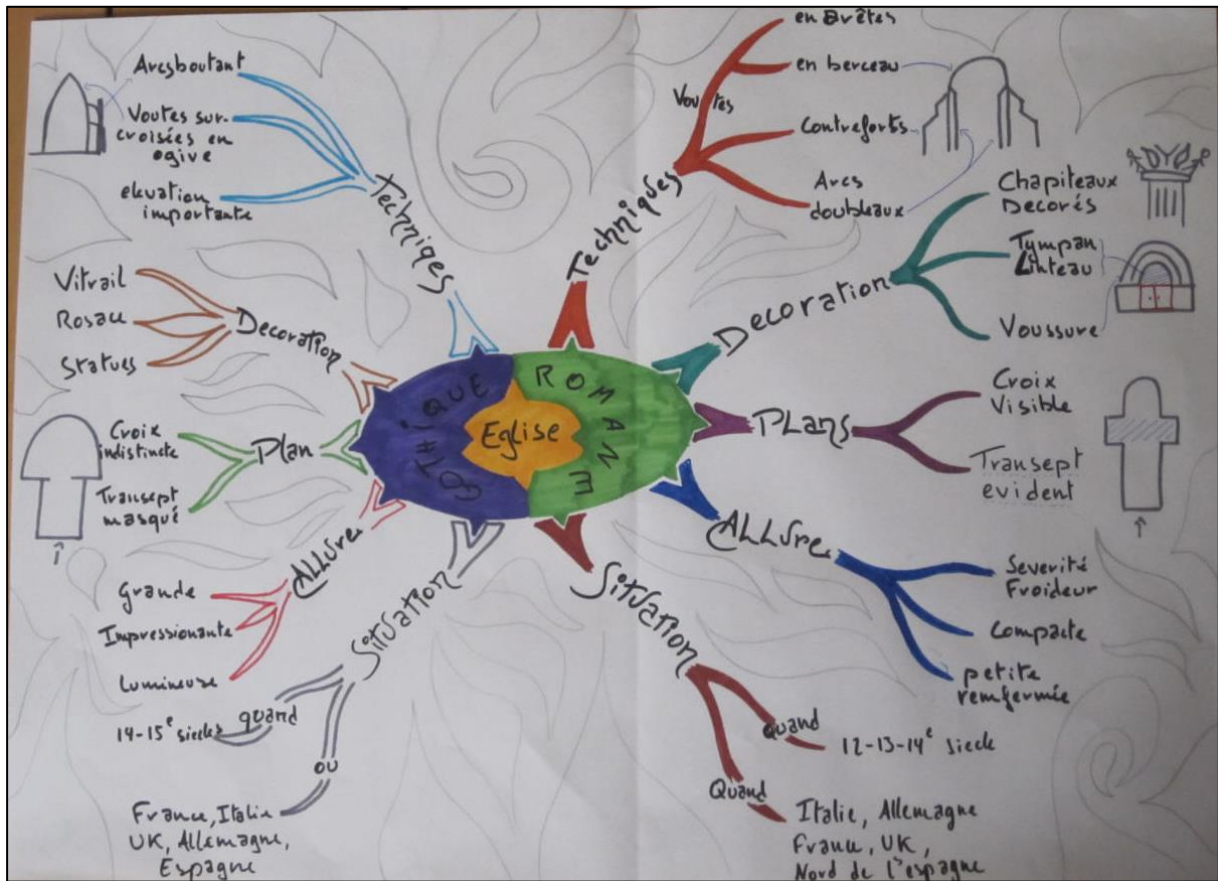 Eglise
GOTHIQUE
ROMANE
Techniqes
Arcsboutant
Voutes sur-
croisées en
ogive
elevation
importante
Decoration
Vitrail
Rosace
Statues
Plan
Croix
indistincte
Transept
masqué
ALLure
Grande
Impressionante
Lumineuse
Situation
quand
14-15e siecles
ou
France, Italie
UK, Allemagne,
Espagne
Techniques
Voutes
en Arêtes
en berceau
Contreforts
Arcs
doubleaux
Decoration
Chapiteaux
Decorés
Tympan
Linteau
Voussure
PLans
Croix
Visible
Transept
evident
ALLure
Severité
Froideur
Compacte
petite
remfermée
Situation
quand
12-13-14e siecle
Quand
Italie, Allemagne
France, UK,
Nord de l'espagne